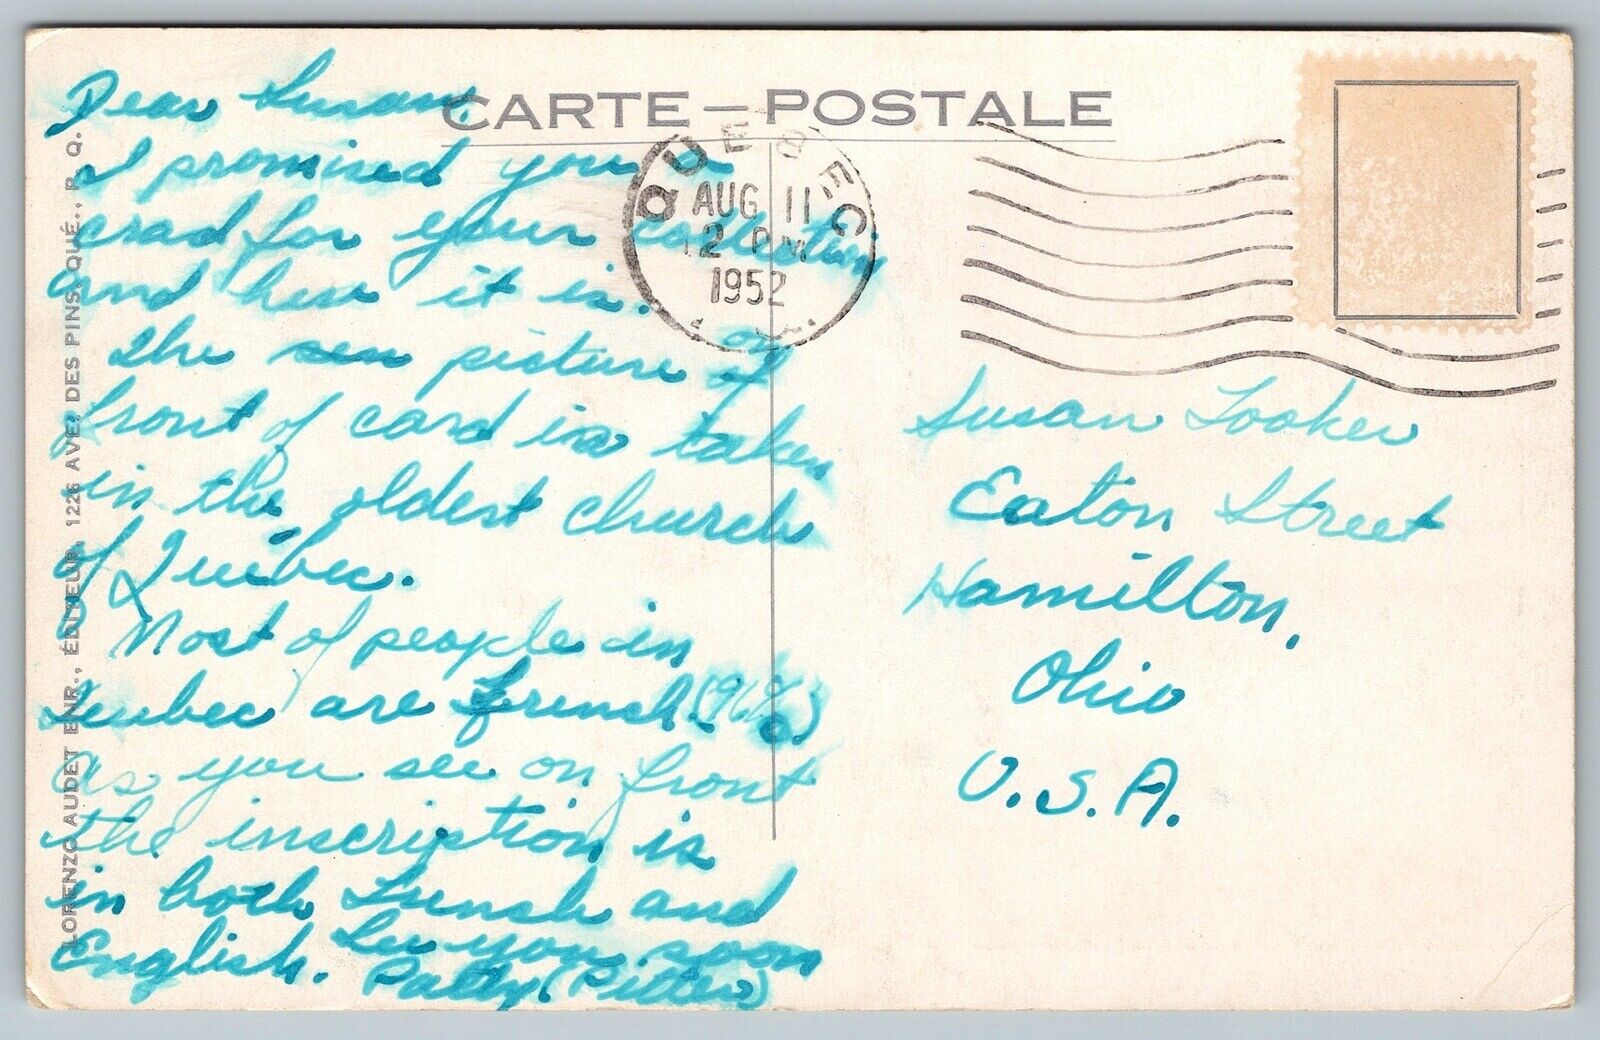 CARTE – POSTALE
QUEBEC
AUG 11
12 PM
1952
Dear Susan,
I promised you a
crad for your collection
and here it is.
The picture on
front of card is taken
in the oldest church
of Quebec.
Most of people in
Quebec are French (96%)
as you see on front
the inscription is
in both French and
English. See you soon
Patty (Pitter)
Susan Looker
Eaton Street
Hamilton,
Ohio
U.S.A.
LORENZO AUDET ENR., ÉDITEUR, 1226 AVE. DES PINS, QUÉ., P. Q.